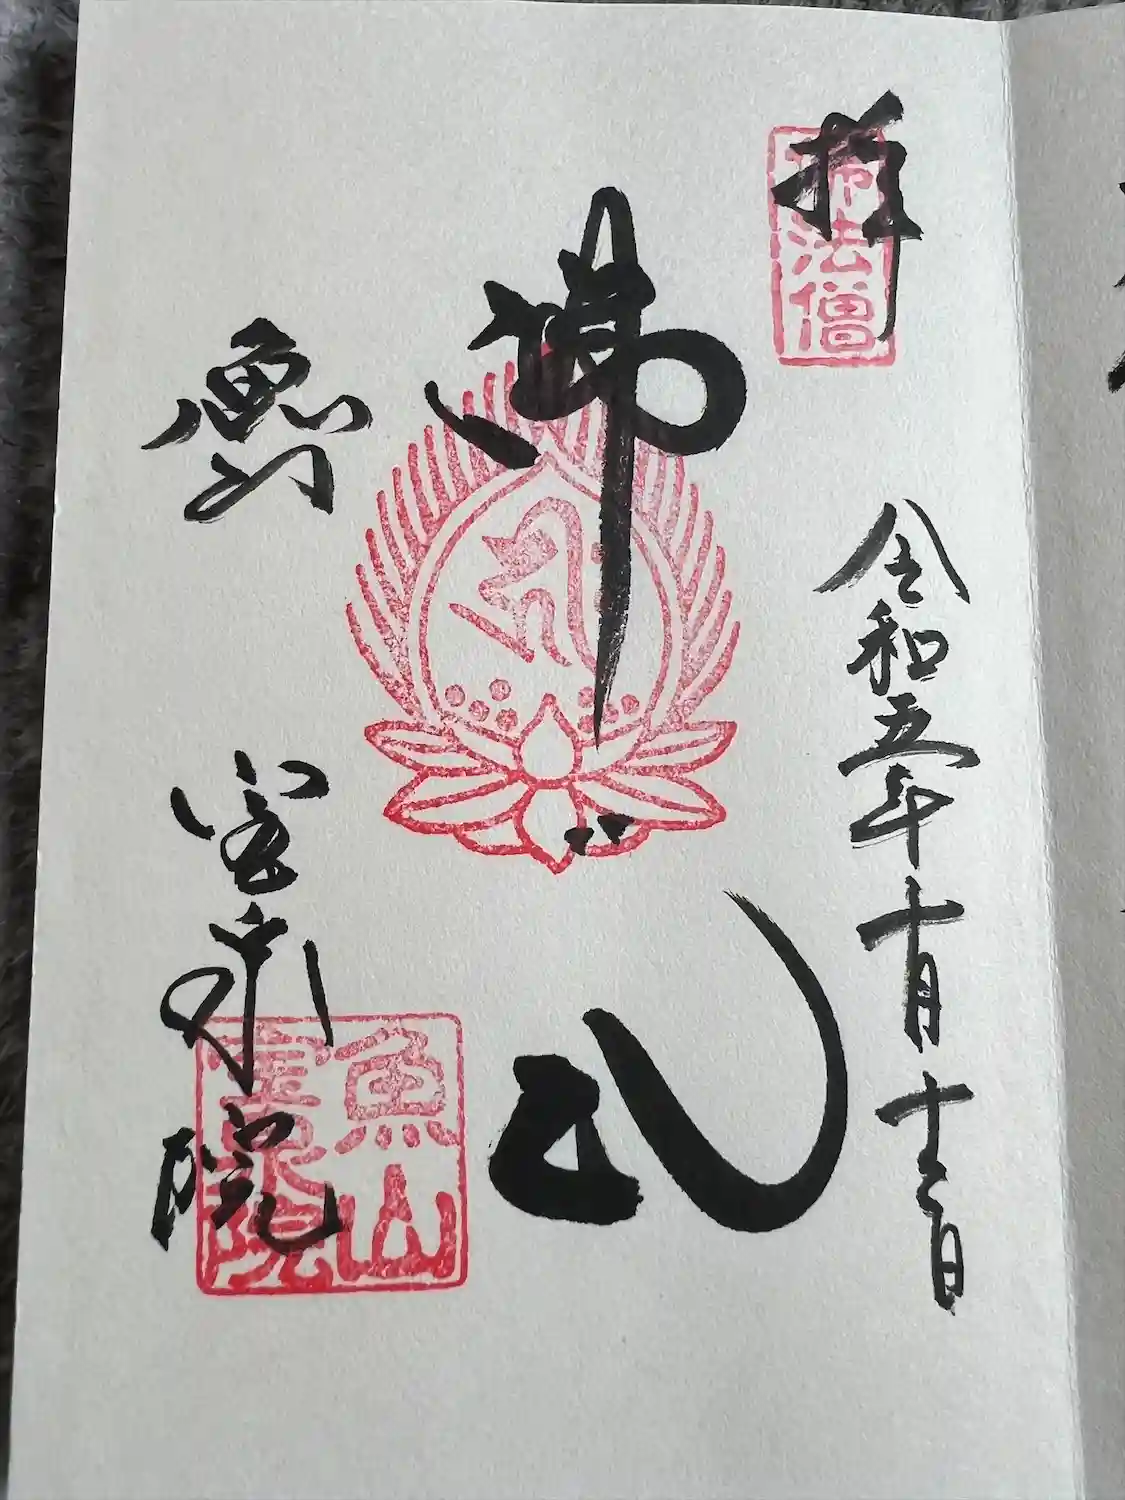 奉拝
佛法僧
令和五年十月十三日
魚山
宝泉院
魚山
寳泉院